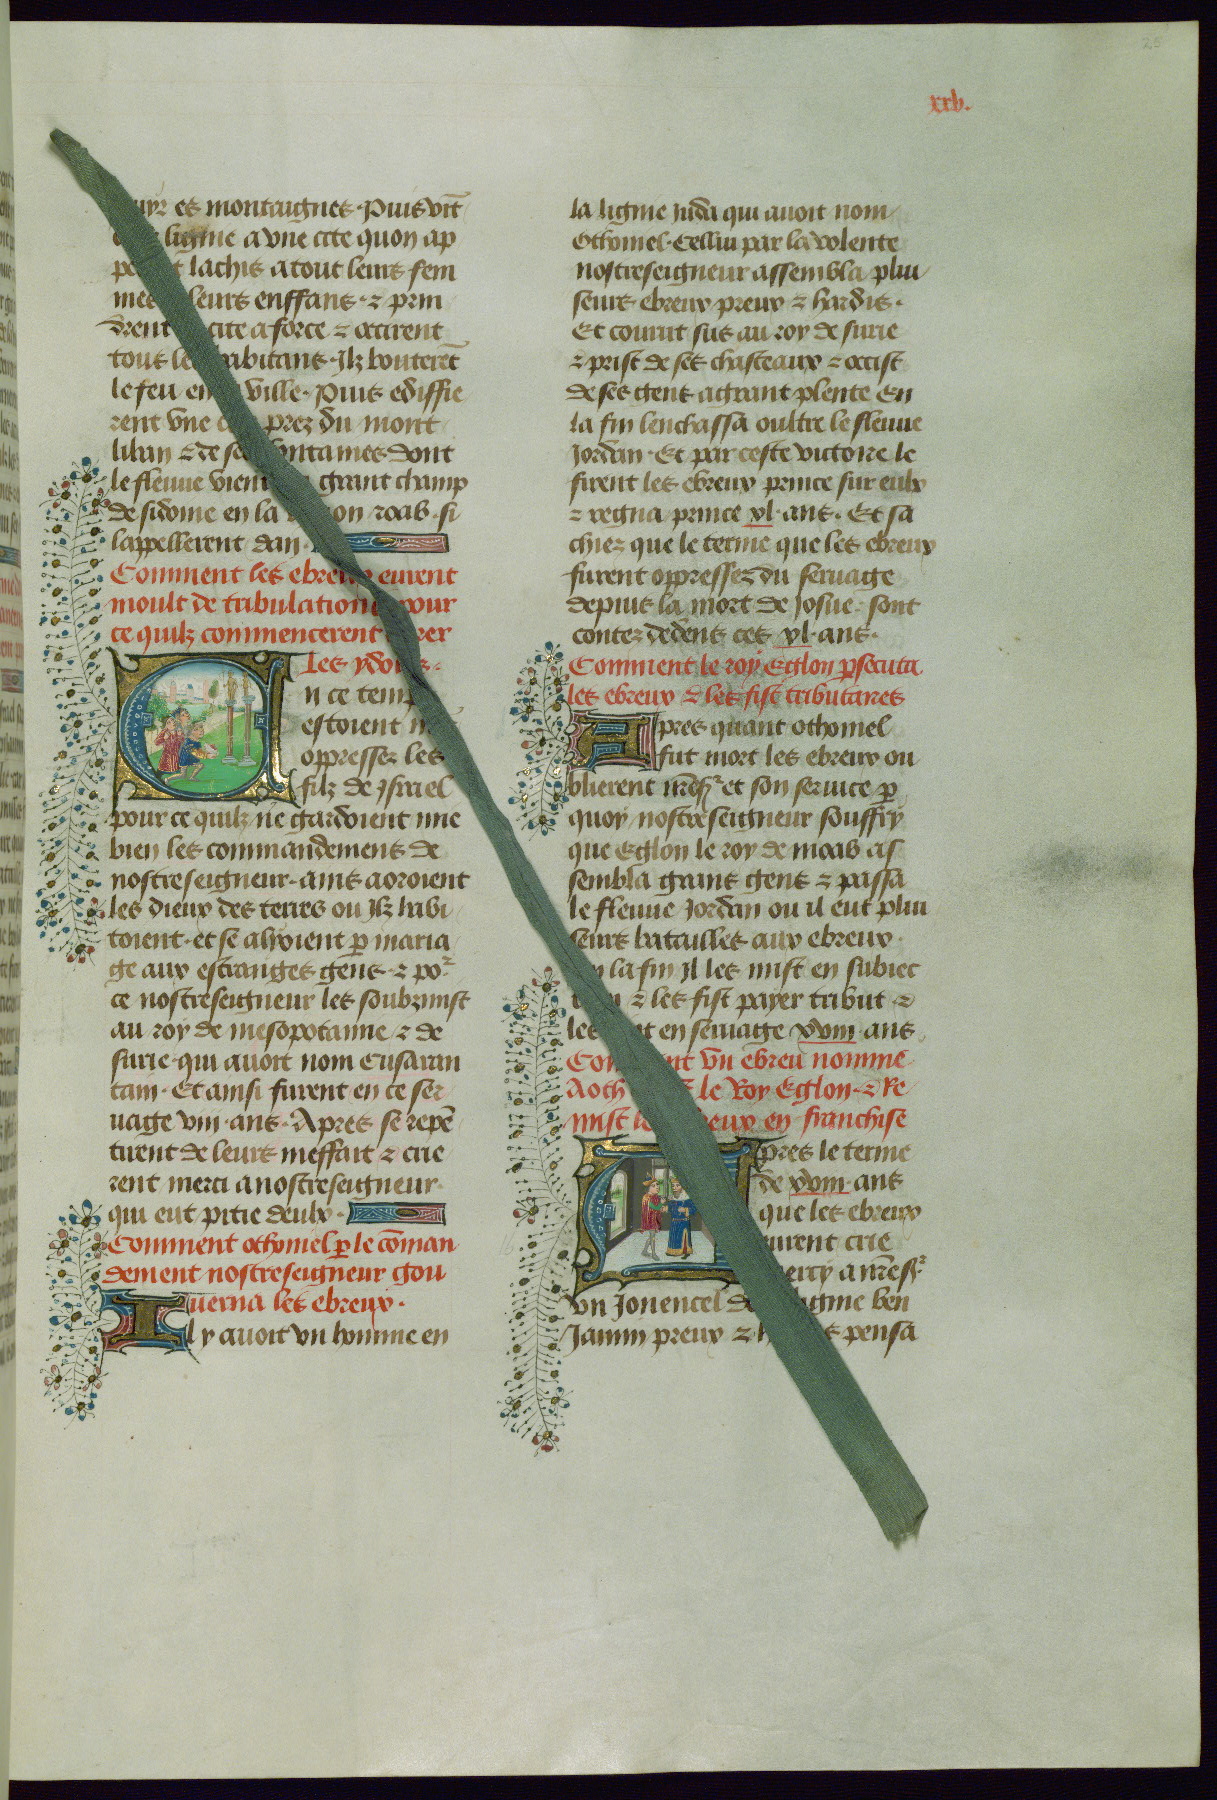 25
xxv.
es montaignes. Puis vit̃
ligme a vne cite quon ap
lachis a tout leurs fem
mes leurs enffans. ⁊ prin
drent cite a force ⁊ occirent
tous les habitans. Jlz bouterẽt
le feu en ville. Puis ediffie
rent vne prez du mont
liban ⁊ de dont
le fleuue vient grant champ
de sidoine en la roab. si
lappellerent dan.
Comment les ebreux eurent
moult de tribulations pour
ce quilz commencerent
Les ydoles.
En ce temps
estoient
oppressez les
filz de Jsrael
pour ce quilz ne gardoient mie
bien les commandemens de
nostreseigneur. ains aoroient
les dieux des terres ou Jlz habi
toient. et se alioient ꝑ maria
ge aux estranges gens. ⁊ poᷣ
ce nostreseigneur les soubzmist
au roy de mesopotamie ⁊ de
surie. qui auoit nom Cusaran
tam. Et ainsi furent en ce ser
uage viii. ans. Apres se repẽ
tirent de leurs meffait ⁊ crie
rent merci a nostreseigneur.
qui eut pitie deulx.
Comment othoniel ꝑ le cõman
dement nostreseigneur gou
uerna les ebreux.
Il y auoit vn homme en
la ligme Juda qui auoit nom
Othoniel. Cellui par la volente
nostreseigneur assembla pluı
seurs ebreux preux ⁊ hardis.
Et courut sus au roy de surie
⁊ prist de ses chasteaux ⁊ occist
de ses gens a grant plente En
la fin lenchassa oultre le fleuue
Jordan. Et par ceste victoire le
firent les ebreux prince sur eulx
⁊ regna prince xl. ans. Et sa
chiez que le terme que les ebreux
furent oppressez du seruage
depuis la mort de Josue. sont
contez dedens ces xl. ans.
Comment le roy Eglon ꝑsecuta
les ebreux ⁊ les fist tributaires
Apres quant othoniel
fut mort les ebreux ou
blierent nr̃esᷣ et son seruice ꝑ
quoy nostreseigneur souffry
que Eglon le roy de moab as
sembla grans gens ⁊ passa
le fleuue Jordan ou il eut pluı
seurs batailles aux ebreux.
la fin Jl les mist en subiec
⁊ les fist payer tribut ⁊
les en seruage xviii. ans
Comment vn ebreu nomme
Aoth le Roy Eglon. ⁊ Re
mist les ebreux en franchise
Apres le terme
de xviii. ans
que les ebreux
eurent crie
mercy a nr̃esᷣ
vn Jouencel de ligme ben
Jamin preux ⁊ pensa